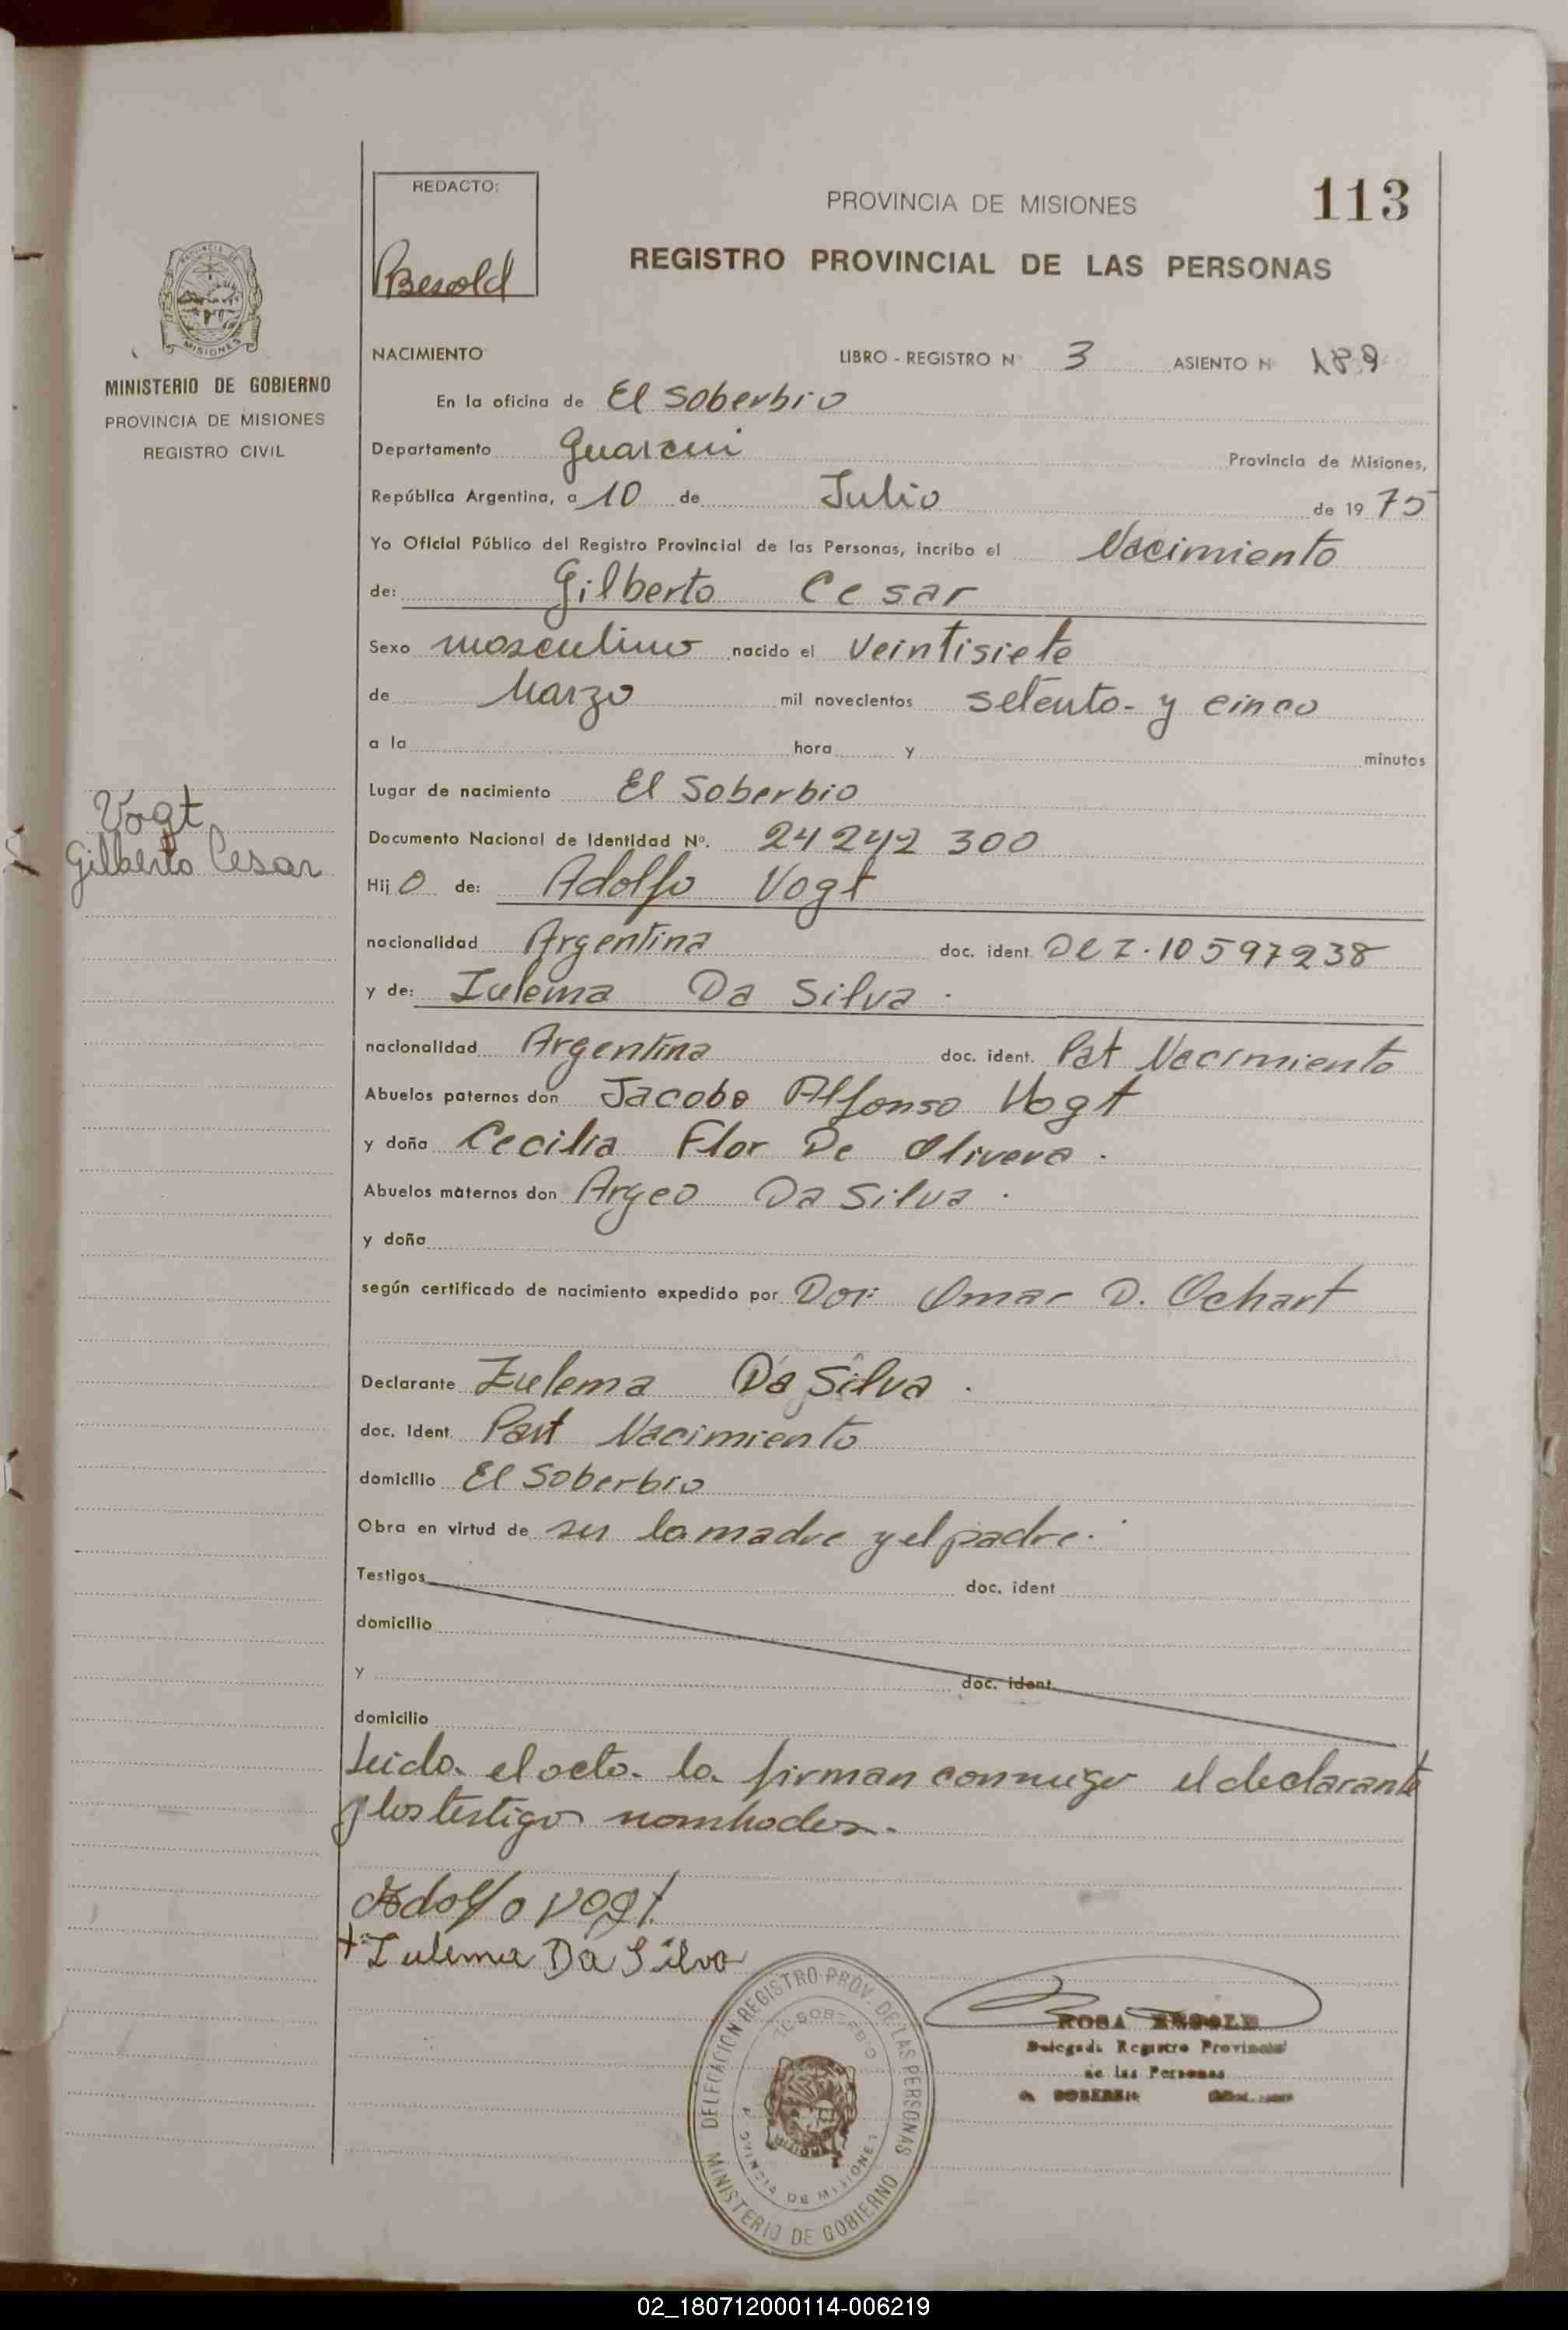 REDACTO:
Besold
PROVINCIA DE MISIONES
113
REGISTRO PROVINCIAL DE LAS PERSONAS
MISIONES
MINISTERIO DE GOBIERNO
PROVINCIA DE MISIONES
REGISTRO CIVIL
NACIMIENTO LIBRO - REGISTRO Nº 3 ASIENTO N 189
En la oficina de El Soberbio
Departamento Guarani Provincia de Misiones,
República Argentina, a 10 de Julio de 1975
Yo Oficial Público del Registro Provincial de las Personas, incribo el Nacimiento
de: Gilberto Cesar
Sexo masculino nacido el veintisiete
de Marzo mil novecientos setenta y cinco
a la hora y minutos
Lugar de nacimiento El Soberbio
Vogt
Gilberto Cesar
Documento Nacional de Identidad Nº. 24242 300
Hijo de: Adolfo Vogt
nacionalidad Argentina doc. ident. DNI. 10597238
y de: Zulema Da Silva.
nacionalidad Argentina doc. ident. Pat Nacimiento
Abuelos paternos don Jacobo Alfonso Vogt
y doña Cecilia Flor De Olivera.
Abuelos maternos don Argeo Da Silva.
y doña
según certificado de nacimiento expedido por Dor: Omar D. Ochart
Declarante Zulema Da Silva.
doc. Ident. Part Nacimiento
domicilio El Soberbio
Obra en virtud de ser la madre y el padre.
Testigos doc. ident
domicilio
y doc. ident.
domicilio
Leida el acta la firman conmigo el declarante
y los testigos nombrados.
Adolfo Vogt
Zulema Da Silva
DELEGACION REGISTRO PROV. DE LAS PERSONAS
EL SOBERBIO
PROVINCIA DE MISIONES
MINISTERIO DE GOBIERNO
ROSA BESOLD
Delegada Registro Provincial
de las Personas
SOBERBIO
02_180712000114-006219